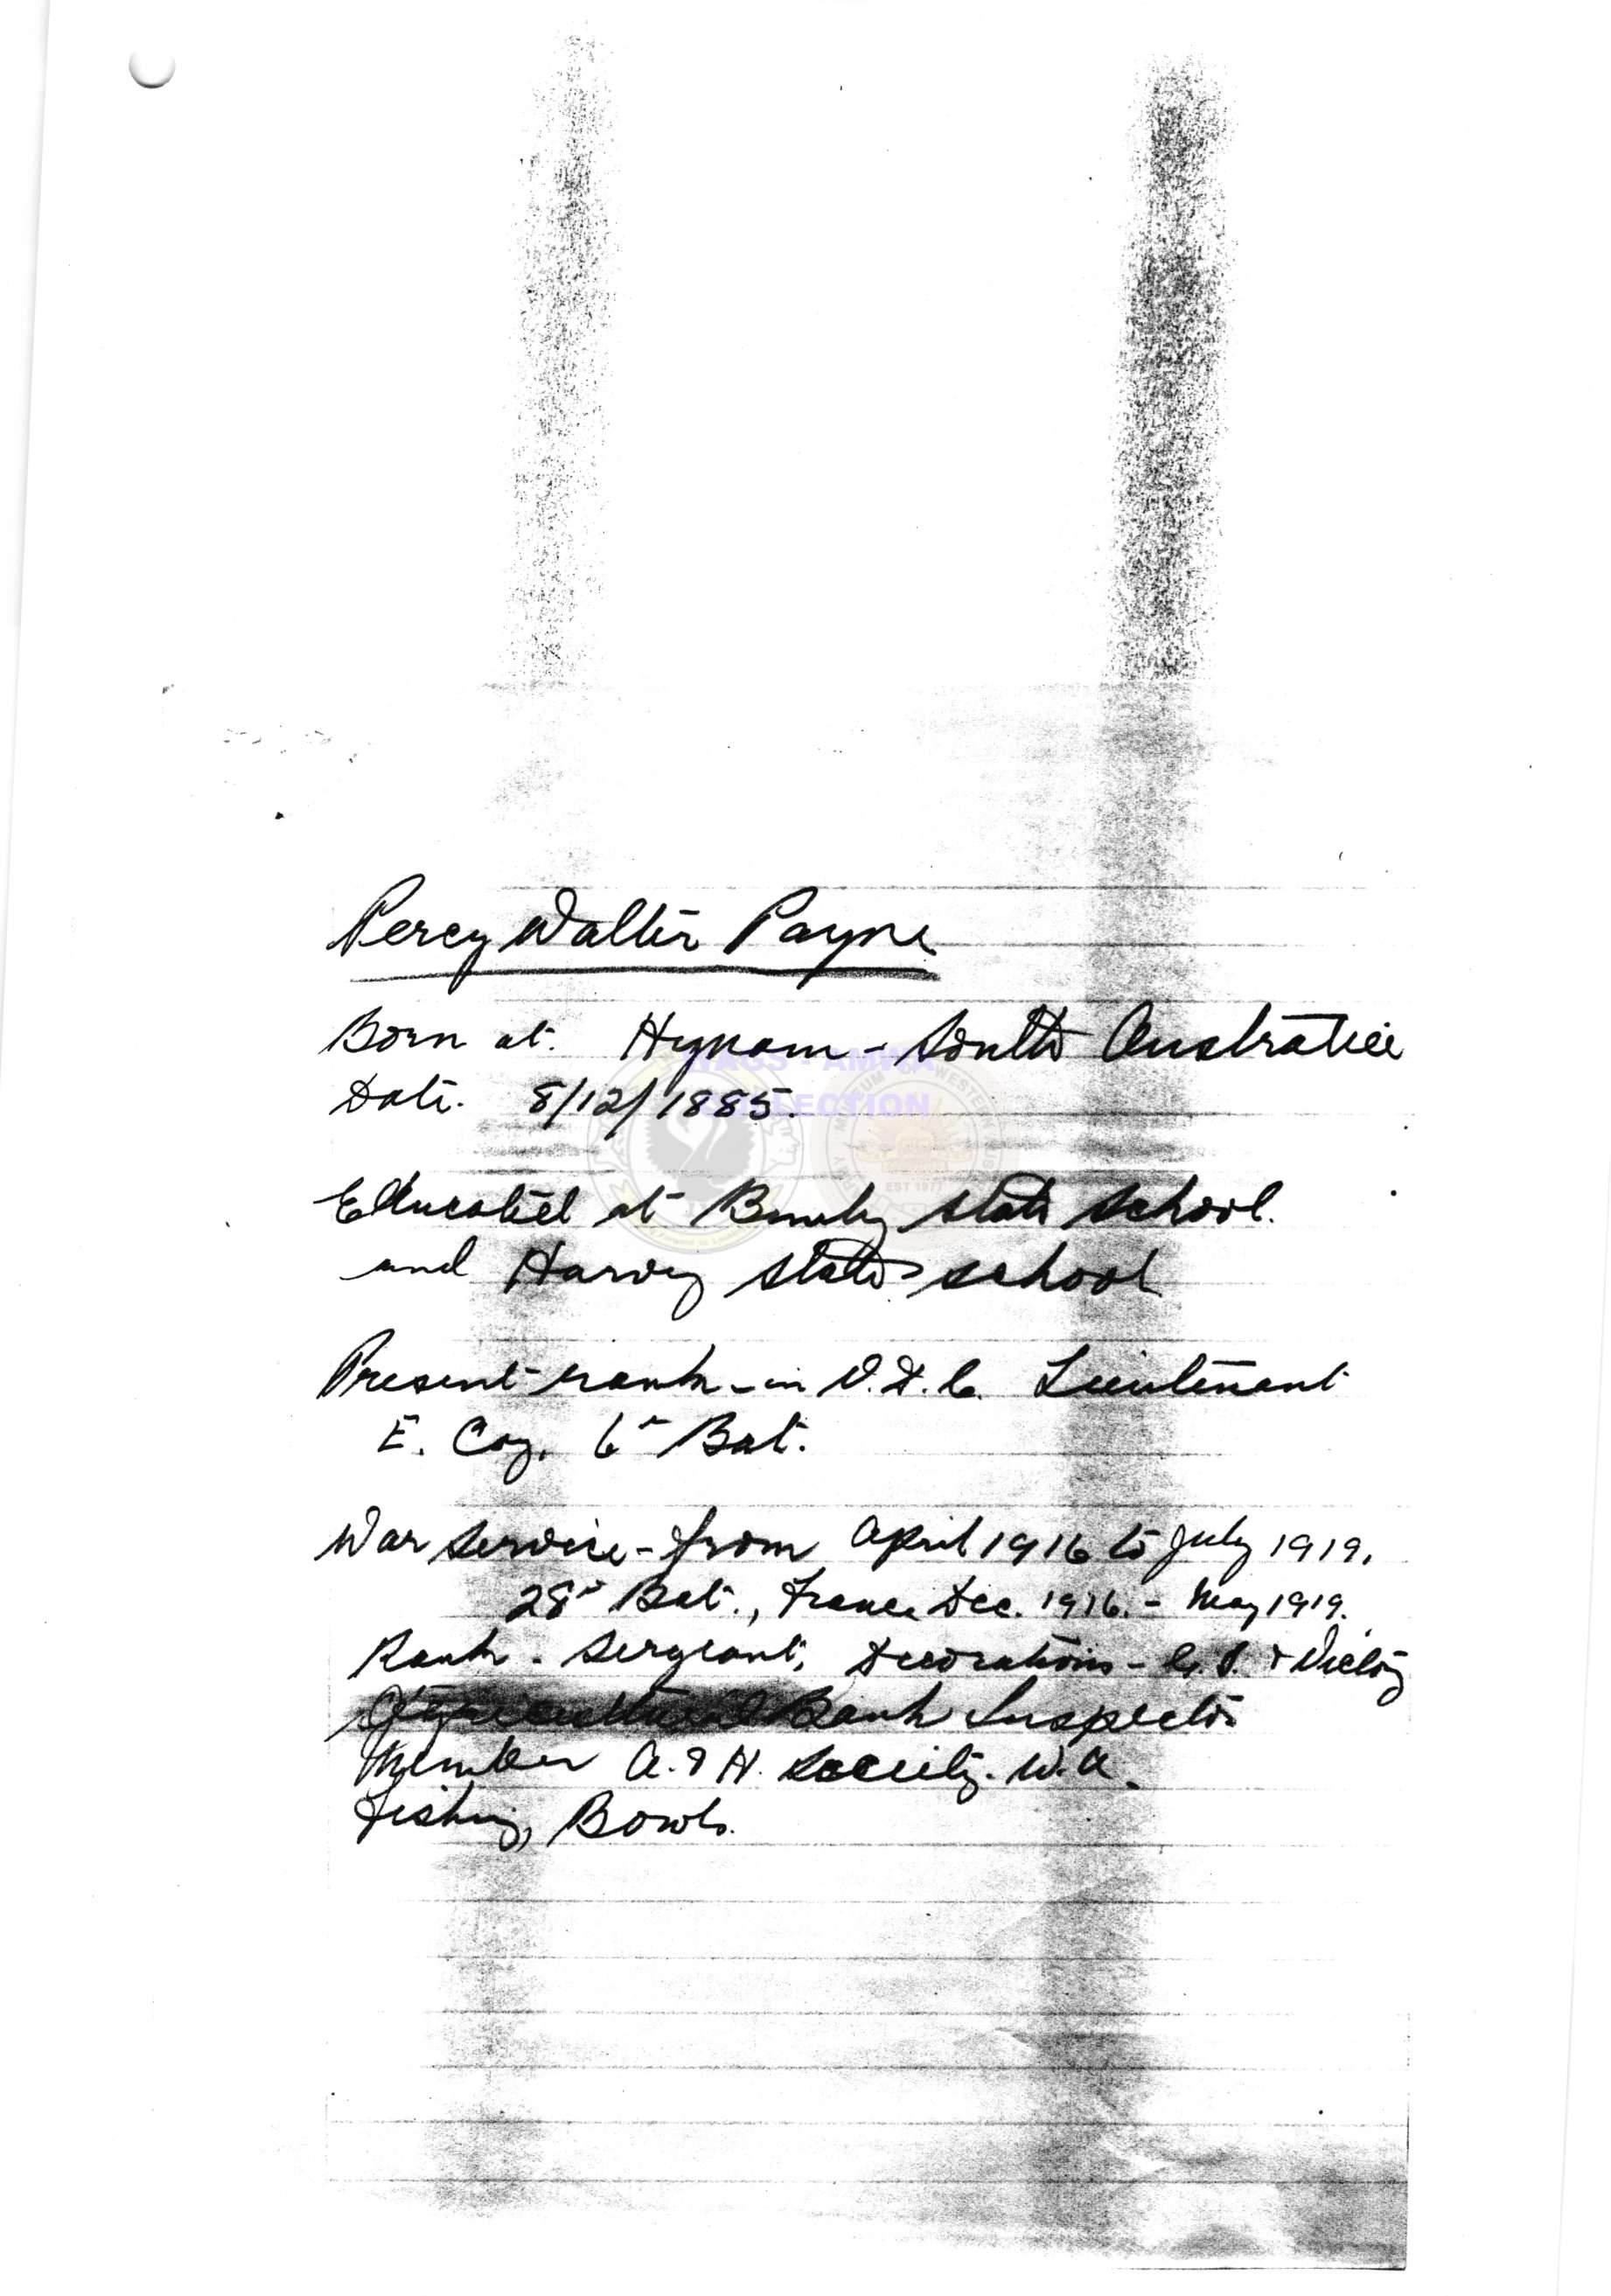 Percy Walter Payne
Born at. Hynam - South Australia
WAGS - AMWA
Date. 8/12/1885.
COLLECTION
Educated at State School.
and Harvey State School
Present rank - in V.D.C. Lieutenant
E. Coy. 6th Bat.
War Service - from April 1916 to July 1919.
28th Bat., France Dec. 1916. - May 1919.
Rank - Sergeant, Decorations - G.S. & Victory
Agricultural Bank Inspector
Member A. & H. Society. W.A.
Fishing, Bowls.